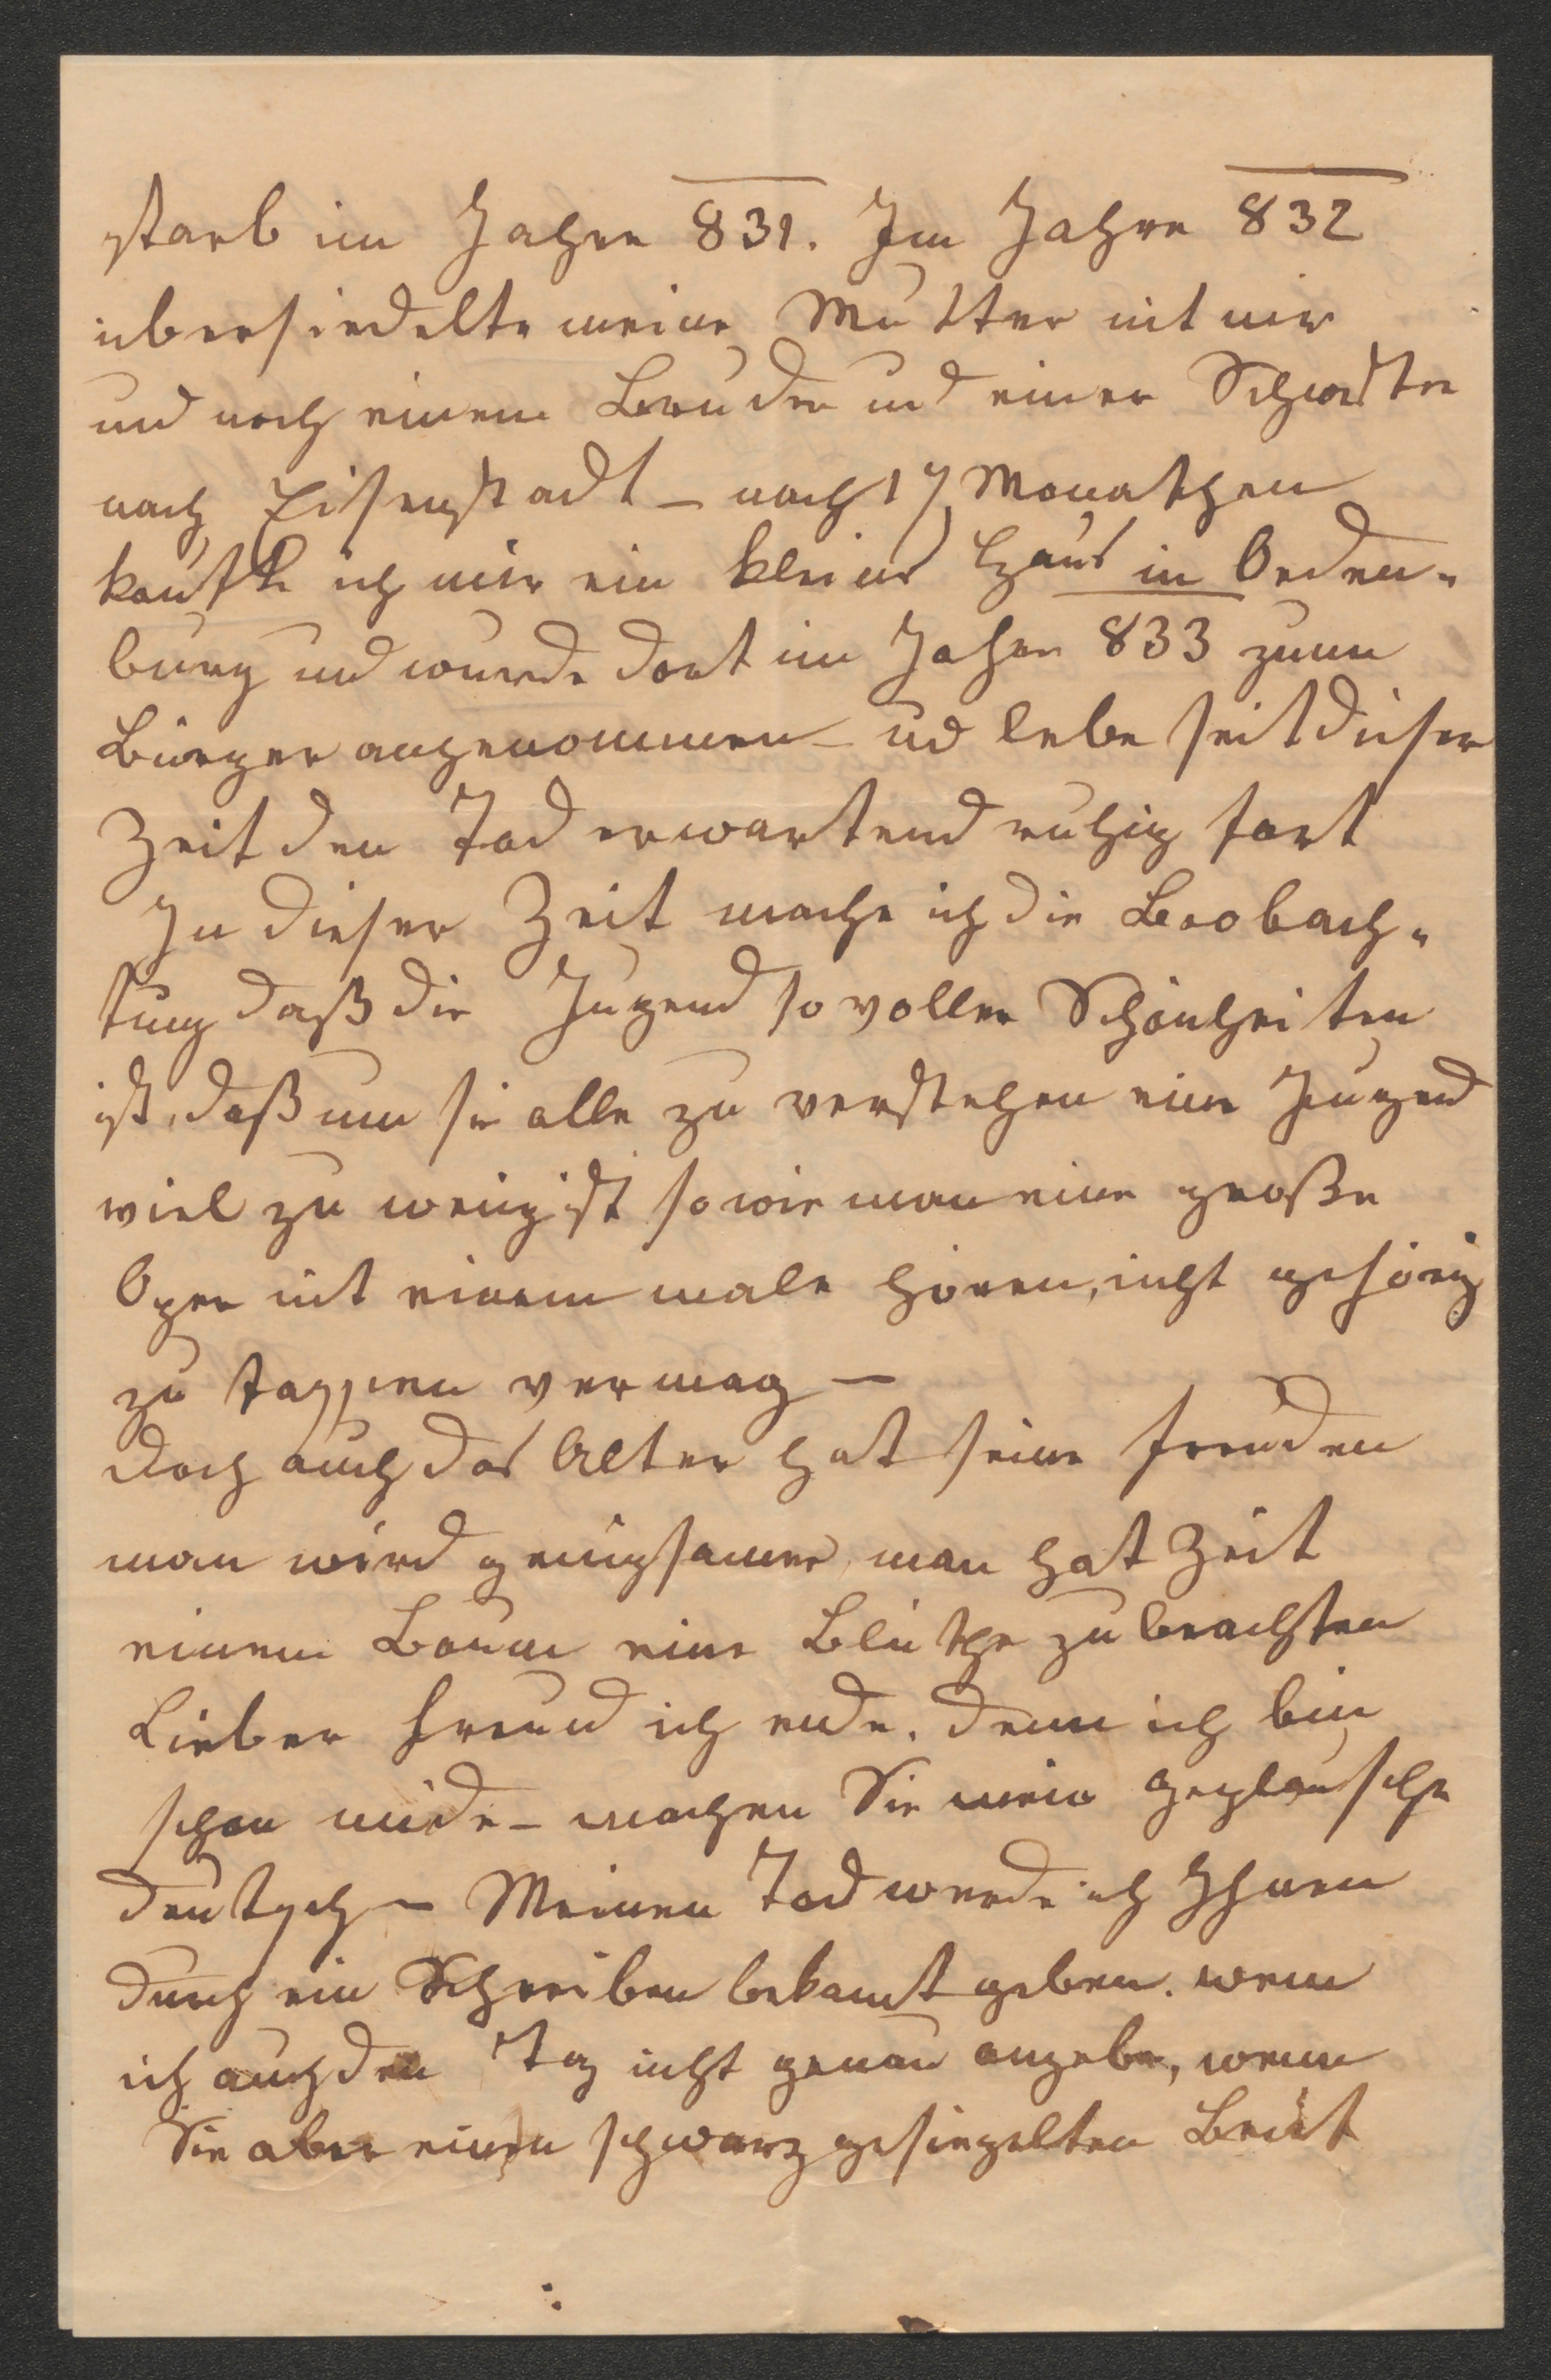 starb im Jahre 831. Im Jahre 832
übersiedelte meine Mutter mit mir
und noch einem Bruder und einer Schwester
nach Eisenstadt – nach 17 Monathen
kaufte ich mir ein kleines Haus in Oeden-
burg und wurde dort im Jahre 833 zum
Bürger angenommen – und lebe seit dieser
Zeit den Tod erwartend ruhig fort
In dieser Zeit mache ich die Beobach-
tung daß die Jugend so voller Schönheiten
ist, daß um sie alle zu verstehen eine Jugend
viel zu wenig ist so wie man eine große
Oper mit einem male hören, nicht gehörig
zu fassen vermag –
Doch auch das Alter hat seine Freuden
man wird genügsamer, man hat Zeit
einem Baum eine Blüthe zu beachten
Lieber Freund ich ende. denn ich bin
schon müde – machen Sie mein Geplausche
deutsch – Meinen Tod werde ich Ihnen
durch ein Schreiben bekannt geben. wenn
ich auch den Tag nicht genau angebe, wenn
Sie aber einen schwarz gesiegelten Brief